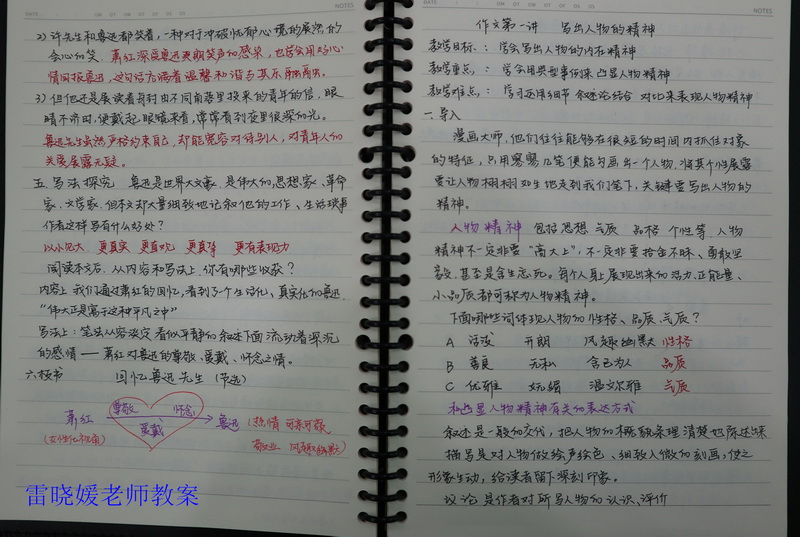 2) 许先生和鲁迅都笑着,一种对于冲破忧郁心境的展然的
会心的笑。萧红深受鲁迅爽朗笑声的感染,也曾会用好心
情回报鲁迅,这句话充满着温馨和谐与其乐融融。
3) 但他还是展读着每封由不同角落里投来的青年的信,眼
睛不济时,便戴起眼镜来看,常常看到夜里很深的时光。
鲁迅先生虽然严格约束自己,却能宽容对待别人,对青年人的
关爱展露无疑。
五. 写法探究 鲁迅是世界大文豪、是伟大的思想家、革命
家、文学家,但本文却大量细致地记叙他的工作、生活琐事
作者这样写有什么好处?
以小见大 更真实 更直观 更真挚 更有表现力
阅读本文后,从内容和写法上,你有哪些收获?
内容上:我们通过萧红的回忆,看到了一个生活化、真实化的鲁迅
“伟大正是寓于这种平凡之中”
写法上:笔法从容淡定,看似平静的叙述下面流动着深沉
的感情——萧红对鲁迅的尊敬、爱戴、怀念之情。
六. 板书 回忆鲁迅先生(节选)
尊敬 怀念
萧红 → 鲁迅 (热情 可亲可敬
(女性化视角) 爱戴 敬业 风趣幽默)
雷晓媛老师教案
NOTES
作文第一讲 写出人物的精神
教学目标:学会写出人物的内在精神
教学重点:学会用典型事例来凸显人物精神
教学难点:学习运用细节 叙述论结合 对比来表现人物精神
一. 导入
漫画大师,他们往往能够在很短的时间内抓住对象
的特征,只用寥寥几笔便能勾画出一个人物,将其个性展露
要让人物栩栩如生地走到我们笔下,关键要写出人物的
精神。
人物精神 包括思想 气质 品格 个性等 人物
精神不一定非要“高大上”,不一定非要拾金不昧、勇敢坚
毅、甚至是舍生忘死。每个人身上展现出来的活力、正能量、
小品质都可称为人物精神。
下面哪些词体现人物的性格、品质、气质?
A 活泼 开朗 风趣幽默 性格
B 善良 无私 舍己为人 品质
C 优雅 妩媚 温文尔雅 气质
和凸显人物精神有关的表达方式
叙述是一般的交代,把人物的概貌条理清楚地陈述出来
描写是对人物做绘声绘色、细致入微的刻画,使之
形象生动,给读者留下深刻印象。
议论 是作者对所写人物的认识、评价